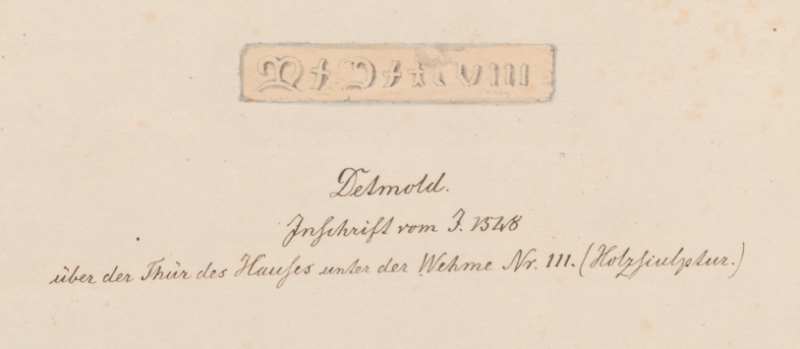 M x D x xlviii
Detmold.
Inschrift vom J. 1548
über der Thür des Hauses unter der Wehme Nr. 111. (Holzsculptur.)